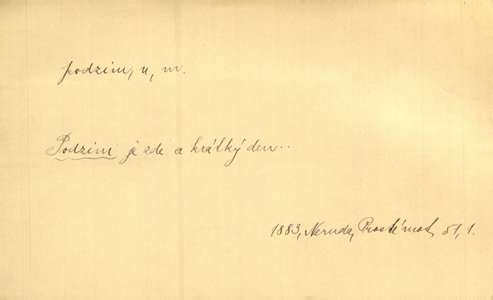 podzim, u, m.
Podzim je zde a krátký den..
1883, Neruda, Prosté mot., 51, 1.